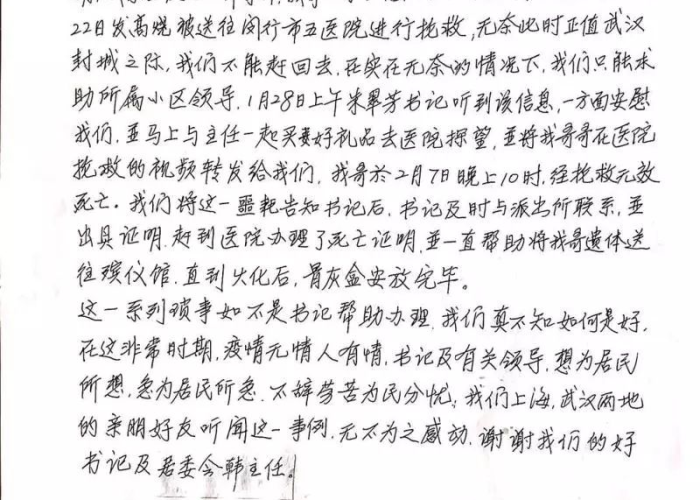 22日发高烧被送往闵行市五医院进行抢救,无奈此时正值武汉
封城之际,我们不能赶回去,在实在无奈的情况下,我们只能求
助所属小区领导,1月28日上午朱翠芳书记听到该信息,一方面安慰
我们,并马上与主任一起买好礼品去医院探望,并将我哥哥在医院
抢救的视频转发给我们,我哥於2月7日晚上10时,经抢救无效
死亡。我们将这一噩耗告知书记后,书记及时与派出所联系,并
出具证明,赶到医院办理了死亡证明,并一直帮助将我哥遗体送
往殡仪馆,直到火化后,骨灰盒安放完毕。
这一系列琐事如不是书记帮助办理,我们真不知如何是好,
在这非常时期,疫情无情人有情,书记及有关领导,想为居民
所想,急为居民所急,不辞劳苦为民分忧;我们上海,武汉两地
的亲朋好友听闻这一事例,无不为之感动,谢谢我们的好
书记及居委会韩主任。